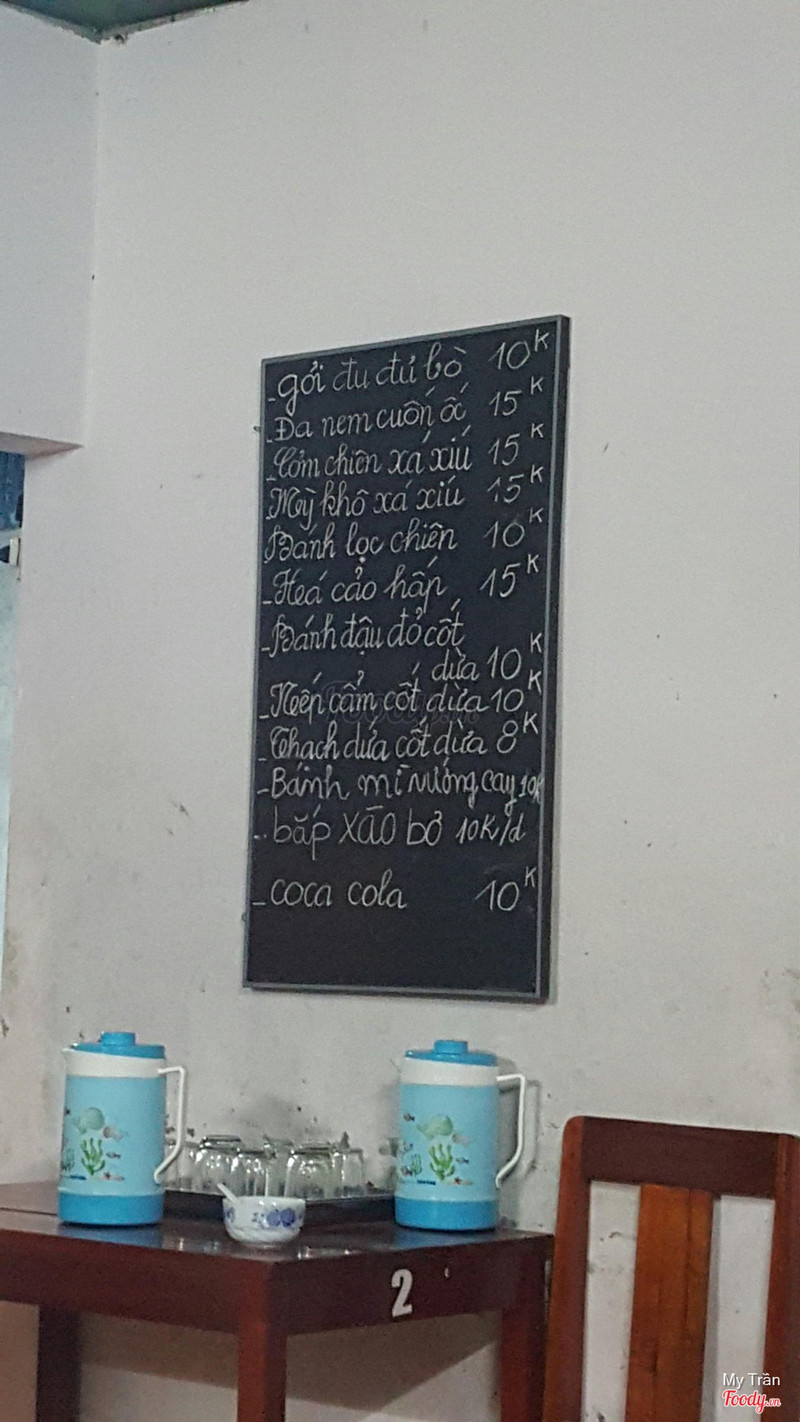 - gỏi đu đủ bò 10K
- Da nem cuốn ốc 15K
- Cơm chiên xá xíu 15K
- Mỳ khô xá xíu 15K
- Bánh lọc chiên 10K
- Há cảo hấp 15K
- Bánh đậu đỏ cốt
dừa 10K
- Nếp cẩm cốt dừa 10K
- Thạch dừa cốt dừa 8K
- Bánh mì nướng cay 10K
- bắp xào bơ 10K/d
- coca cola 10K
2
My Trần
Foody.vn